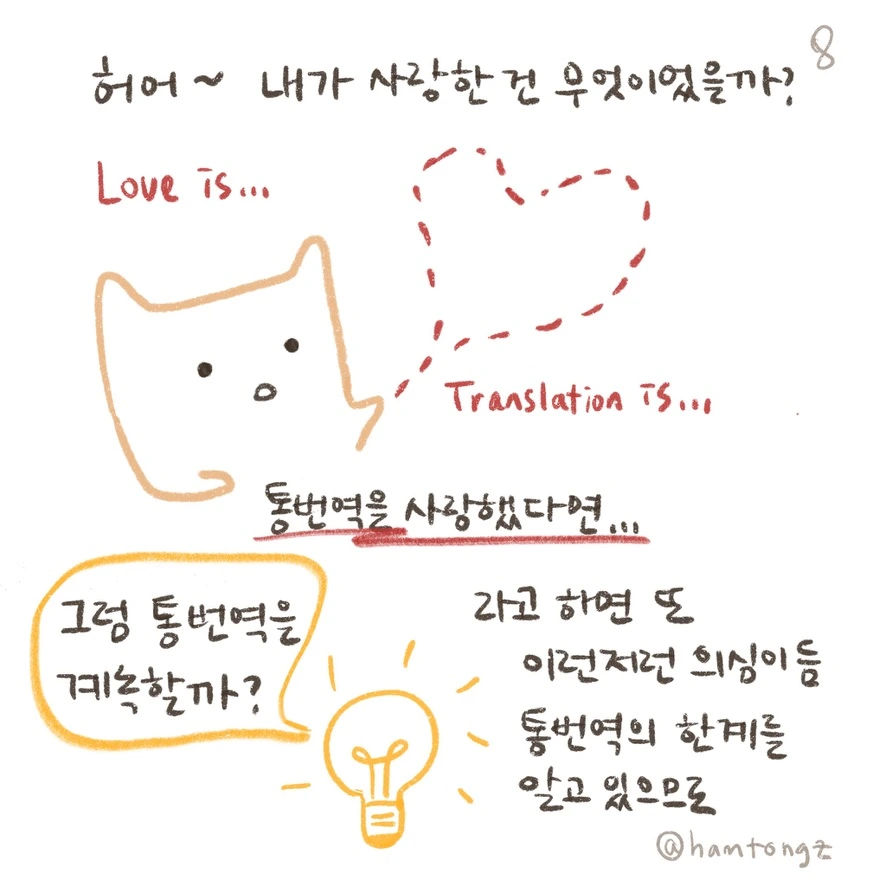 8
허어~ 내가 사랑한 건 무엇이었을까?
Love is...
Translation is...
통번역을 사랑했다면...
그럼 통번역을
계속할까?
라고 하면 또
이런저런 의심이 듬
통번역의 한계를
알고 있으므로
@hamtongz